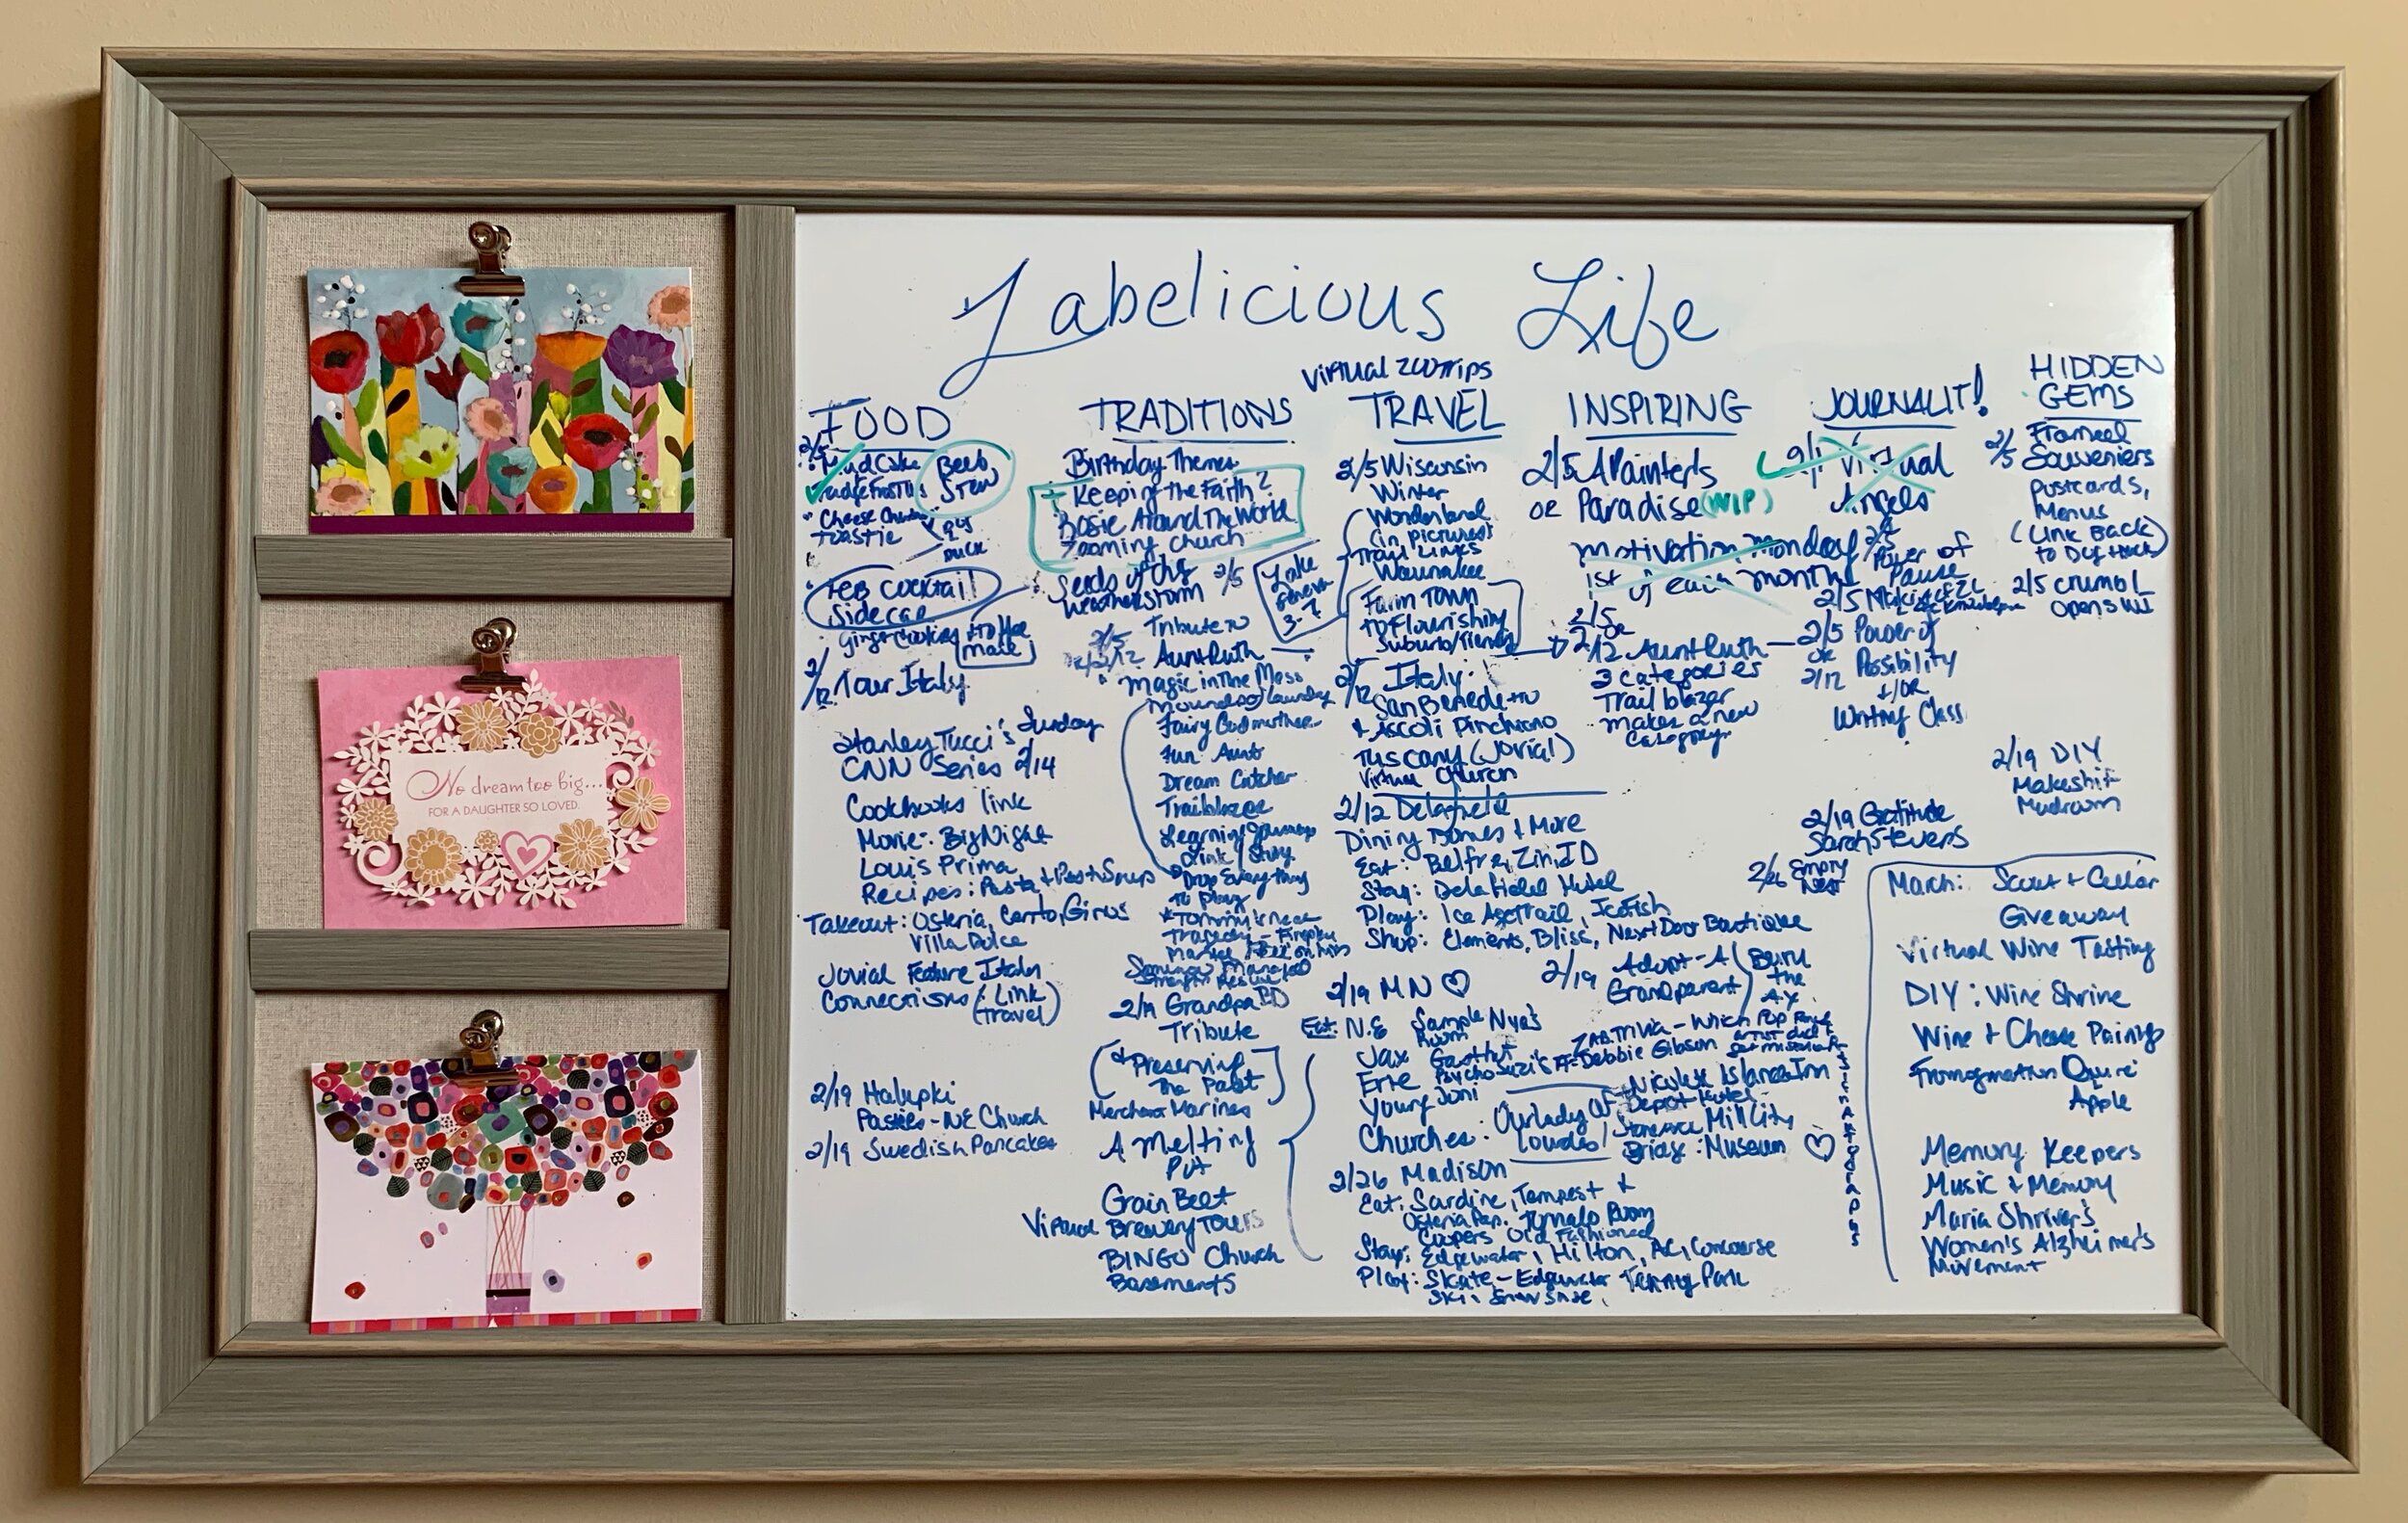 No dream too big...
FOR A DAUGHTER SO LOVED.
Zabelicious Life
FOOD
2/5
Mud Cake
Beef
Stew
Cheese
toastie
Feb Cocktail
Sidecar
Ginger Cookies
2/12 Tour Italy
Stanley Tucci's Sunday
CNN Series 2/14
Cookbooks link
Movie: Big Night
Louis Prima
Recipes: Pasta + Past Soups
Takeout: Osteria,
Villa Dolce
Jovial Feature Italy
Connections (Link
travel)
2/19 Halupki
Pasties - NE Church
2/19 Swedish Pancakes
TRADITIONS
Birthday Themes
Keeping the Faith?
Rosie Around The World
Zooming Church
Seeds of the
Weatherstorm 2/5
Tribute to
2/12 Aunt Ruth
Magic in the Mess
Fairy Godmother
Fun Aunt
Dream Catcher
Trailblazer
Link / Story
Drop Everything
to Play
2/19 Grandpa
Tribute
(+ Preserving
The Past)
Merchant Marines
A Melting
Pot
Grain Belt
Virtual Brewery Tours
BINGO Church
Basements
Virtual Zoo Trips
TRAVEL
2/5 Wisconsin
Winter
Wonderland
(in pictures)
Trail Links
Waunakee
Lake
Geneva
3-7
Farm Town
to Flourishing
Suburb/
2/12 Italy:
San Benedetto
+ Ascoli
Tuscany (Jovial)
Virtual Church
2/12 Delafield
Dining Domes + More
Eat: Belfre, Zin, ID
Stay: Delafield Hotel
Play: Ice Age Trail, Ice Fish
Shop: Elements, Bliss, Next Door Boutique
2/19 MN ♡
Eat: N.E Sample Nye's
Room
Jax Gasthof
Erte Psycho Suzi's
Young Joni
Churches: Our Lady of
Lourdes
Nicollet Island Inn
Depot Hotel
Mill City
Bridge : Museum ♡
2/26 Madison
Eat: Sardine, Tempest +
Osteria Pap. Tornado Room
Coopers Old Fashioned
Stay: Edgewater, Hilton, AC, Concourse
Play: Skate - Edgewater Tenney Park
Ski, Snow Shoe,
INSPIRING
2/5 A Painter's
or Paradise (WIP)
Motivation Monday
1st of each month
2/5
or
2/12 Aunt Ruth
3 categories
Trailblazer
makes a new
Category
2/19 Adopt-A
Grandparent
Trivia - Which Pop
Debbie Gibson
JOURNAL IT!
Virtual
Angels
Power of
Pause
2/5 Power of
or Possibility
2/12 +/or
Writing Class
2/19 Gratitude
Sarah Stevens
2/26 Empty
Nest
HIDDEN
GEMS
2/5 Framed
Souveniers
Postcards,
Menus
(Link Back
to
2/5 Crumbl
Opens WI
2/19 DIY
Makeshift
Mudroom
March: Scout + Cellar
Giveaway
Virtual Wine Tasting
DIY: Wine Shrine
Wine + Cheese Pairings
Apple
Memory Keepers
Music + Memory
Maria Shriver's
Women's Alzheimer's
Movement